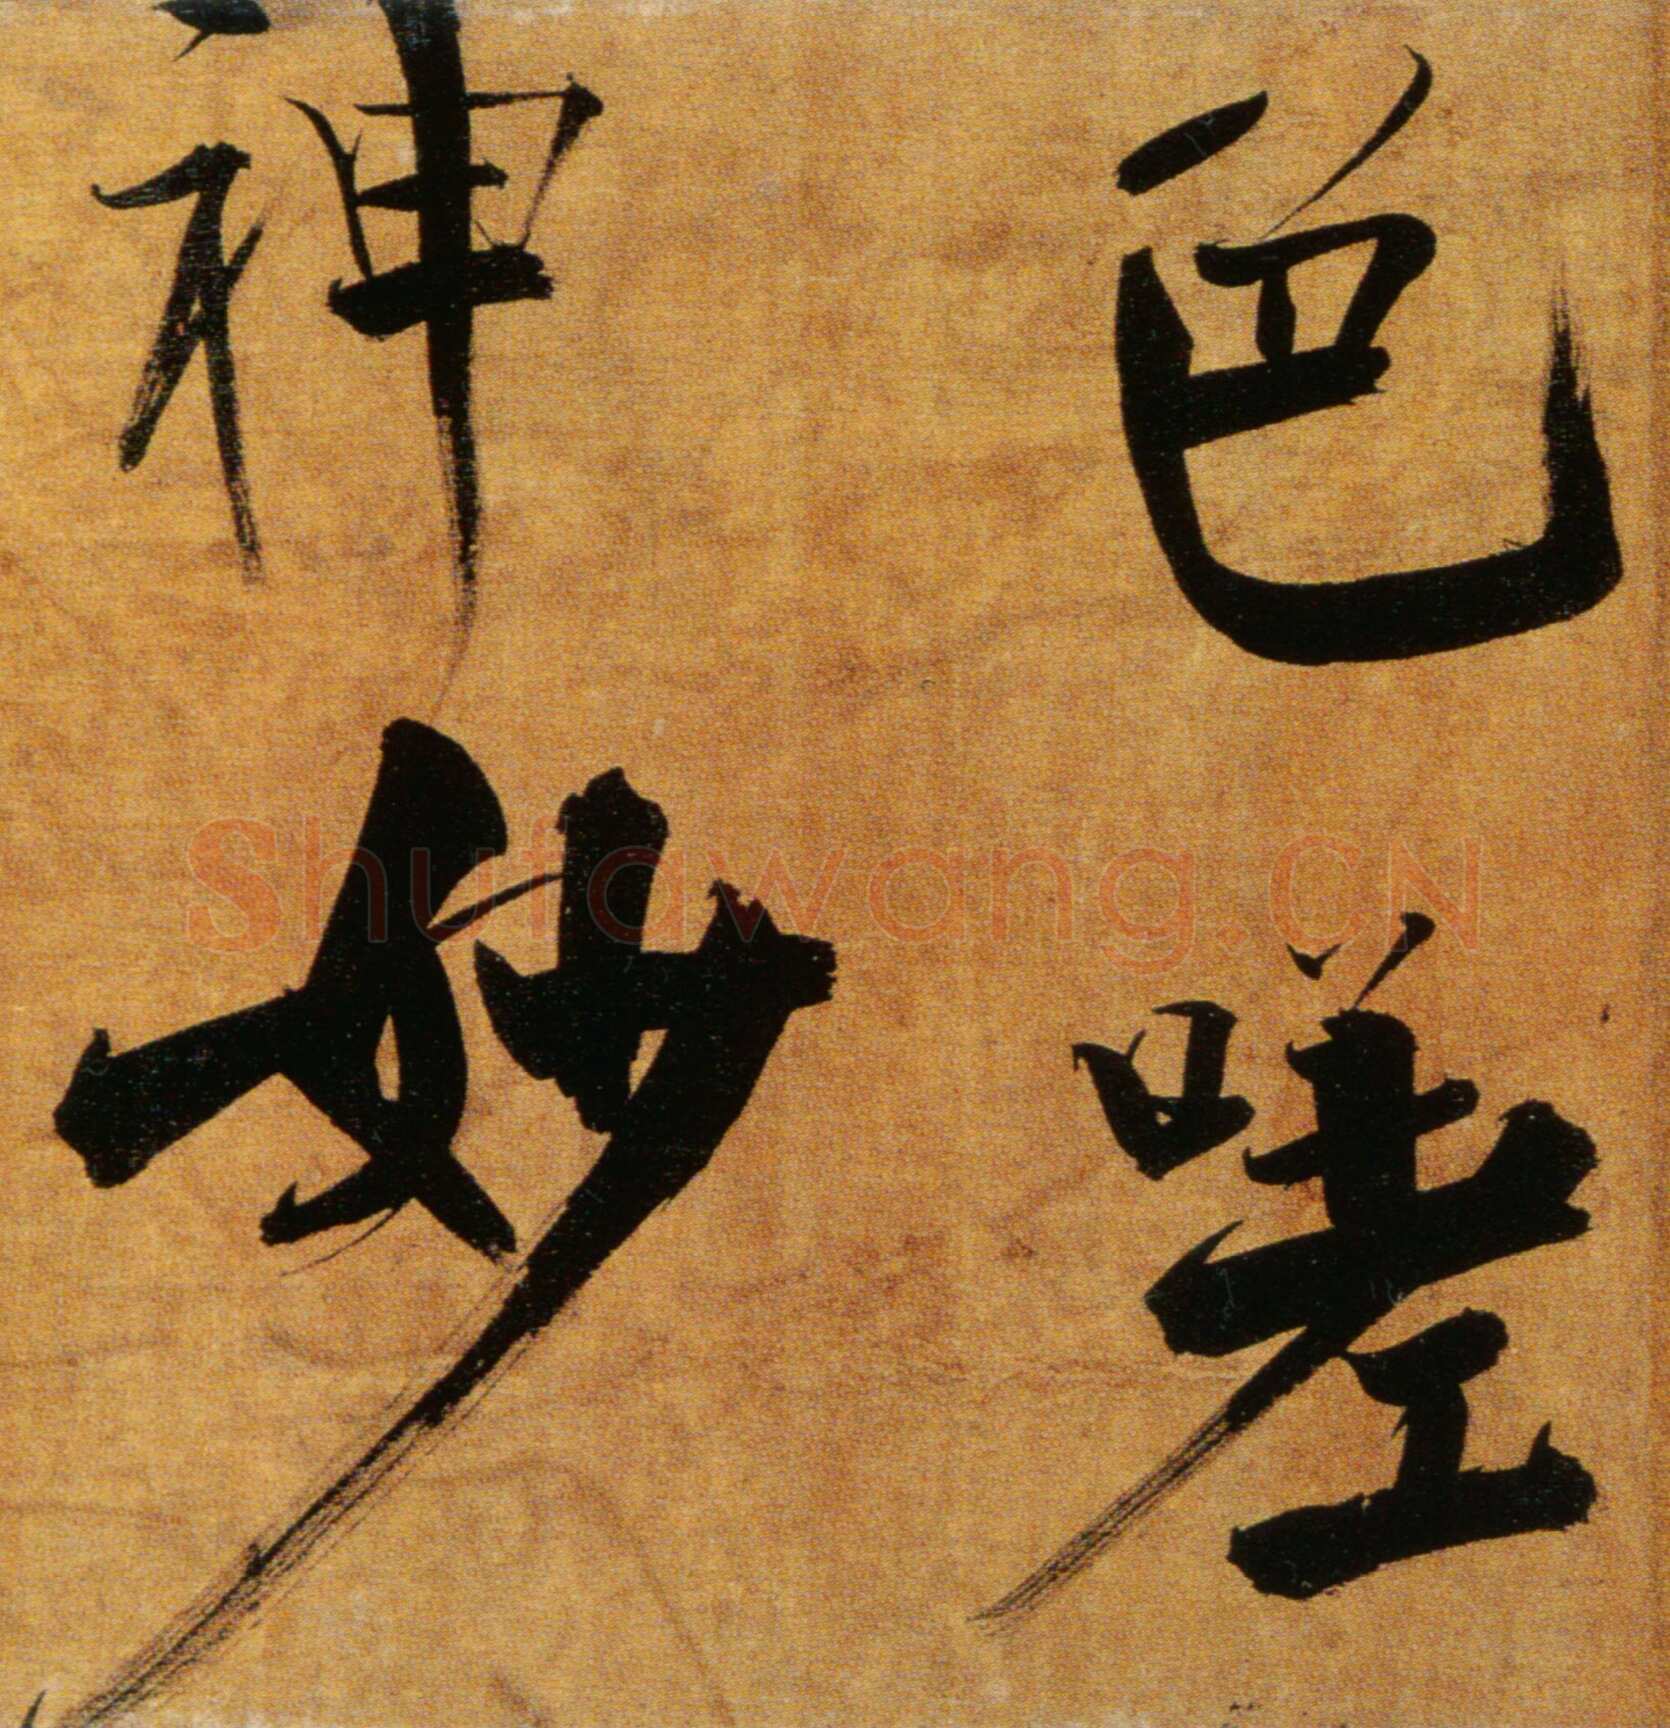 色嗟
神妙
Shufawang.CN